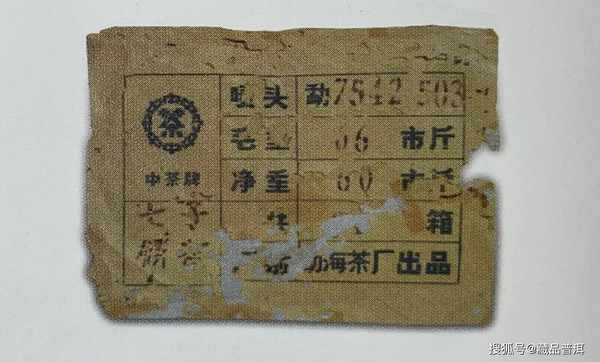 茶
中茶牌
七子
饼
唛头 勐7542 503
毛重 66 市斤
净重 60 市斤
箱
勐海茶厂出品
搜狐号@藏品普洱